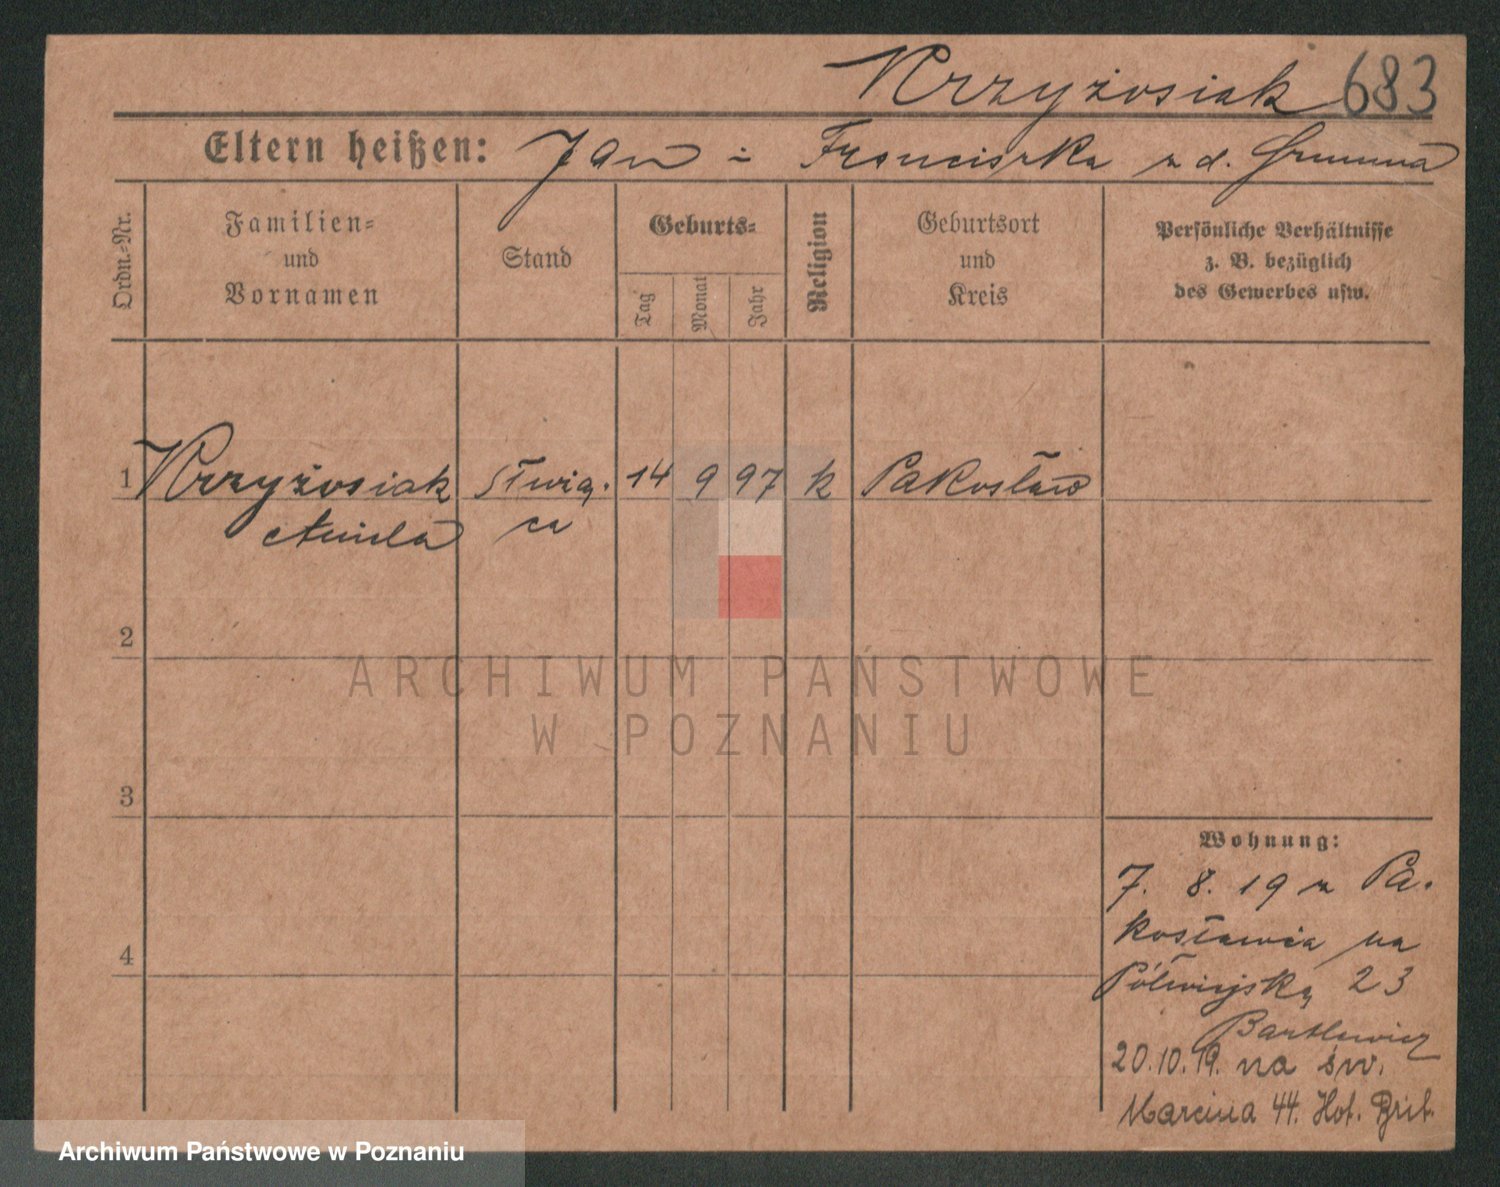 Krzyżosiak 683
Eltern heißen: Jan i Franciszka z d.
Ordn.-Nr.
Familien-
und
Vornamen
Stand
Geburts-
Tag
Monat
Jahr
Religion
Geburtsort
und
Kreis
Persönliche Verhältnisse
z. B. bezüglich
des Gewerbes usw.
1 Krzyżosiak służą. 14 9 97 k Pakosław
Aniela ca
2
ARCHIWUM PAŃSTWOWE
W POZNANIU
3
Wohnung:
7. 8. 19 z Pa.
kosławia na
Półwiejską 23
4
20.10.19. na św.
Marcina 44. Hot. Brit.
Archiwum Państwowe w Poznaniu